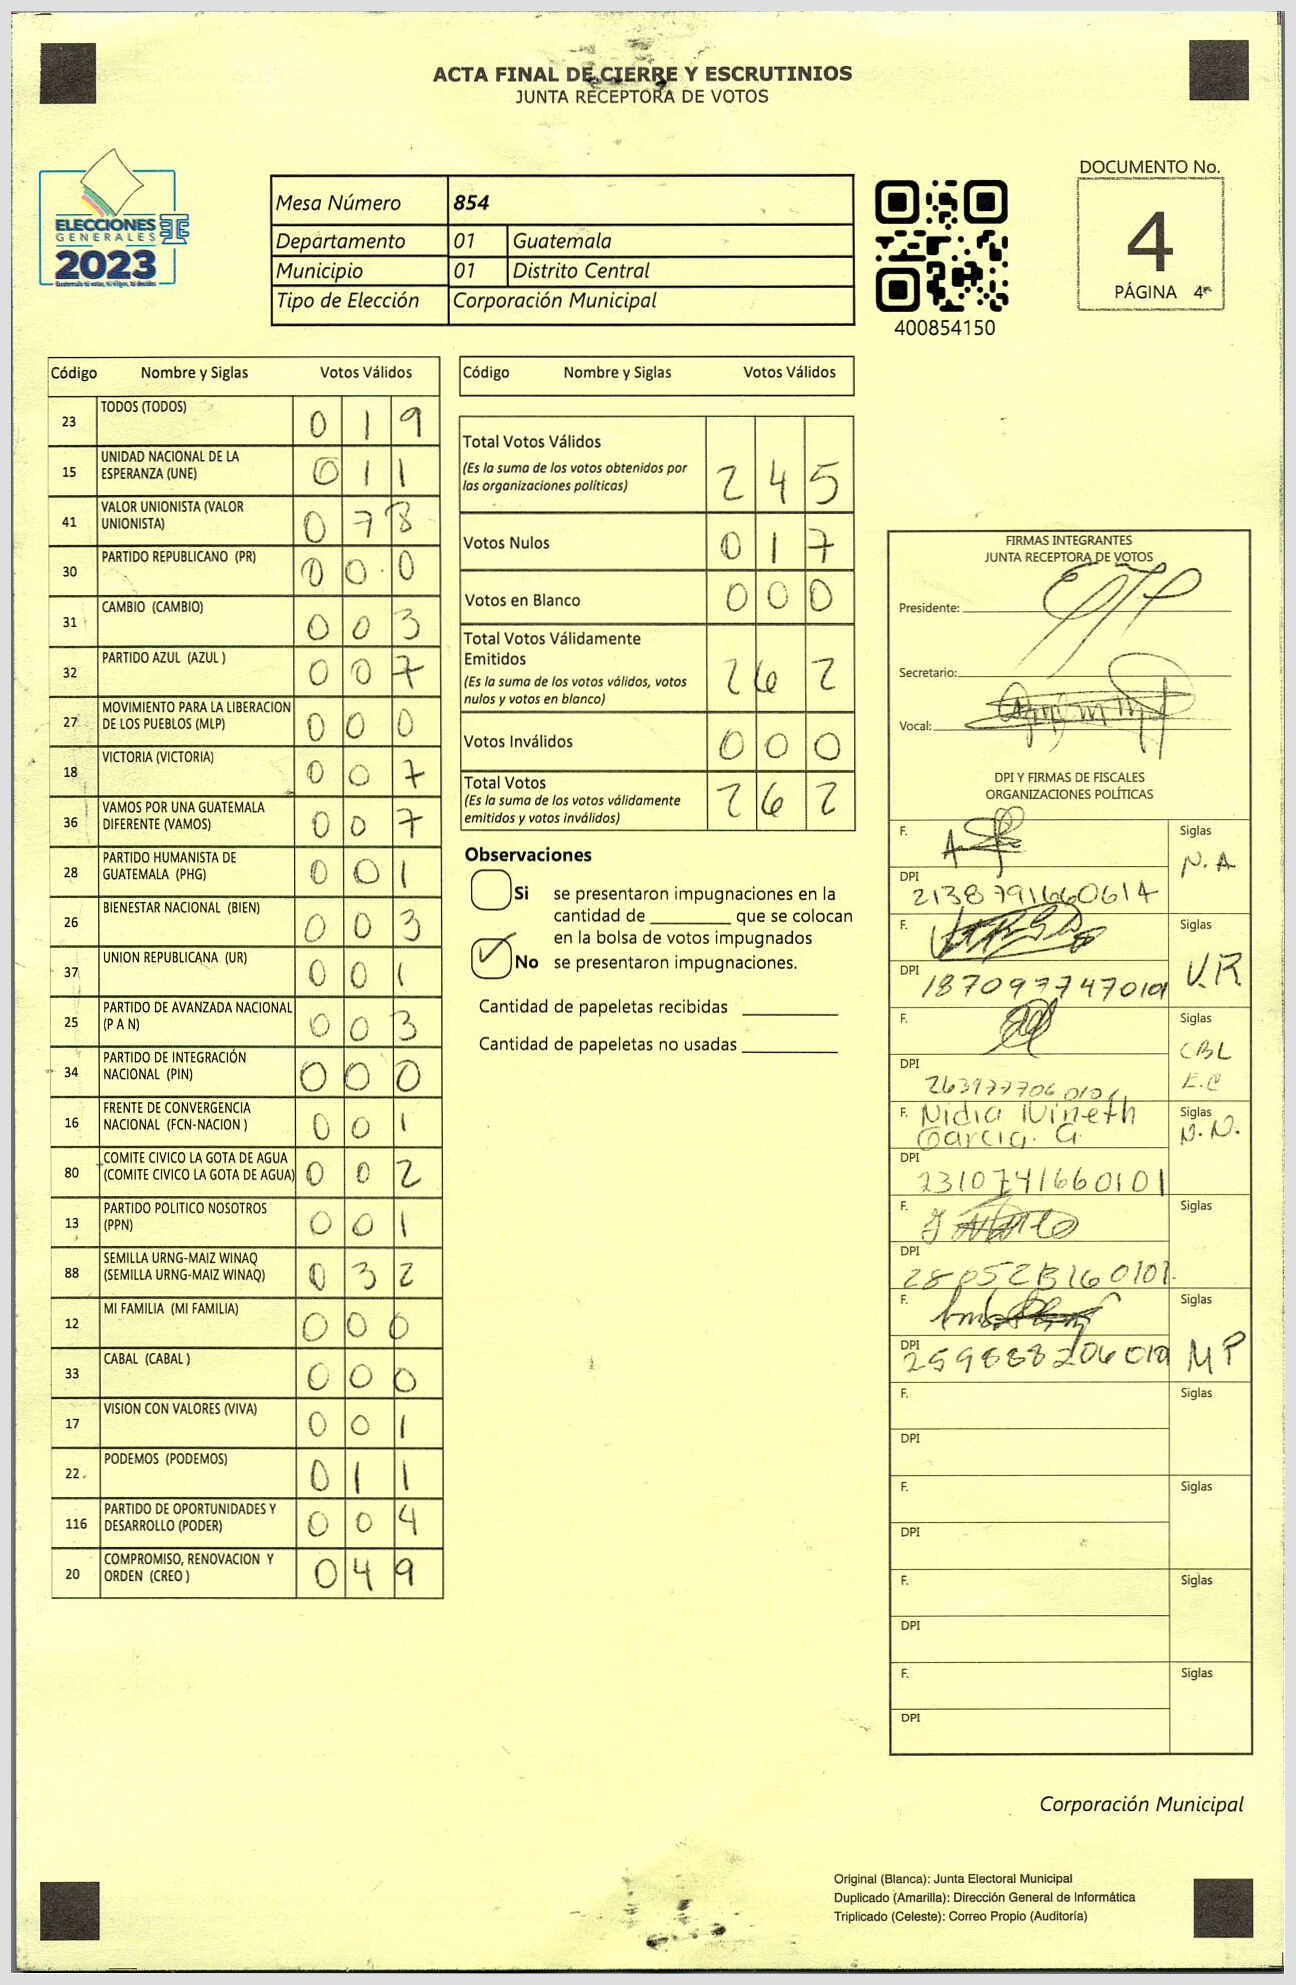 ACTA FINAL DE CIERRE Y ESCRUTINIOS
JUNTA RECEPTORA DE VOTOS
ELECCIONES
GENERALES
2023
Mesa Número 854
Departamento 01 Guatemala
Municipio 01 Distrito Central
Tipo de Elección Corporación Municipal
400854150
DOCUMENTO No.
4
PÁGINA 4
Código Nombre y Siglas Votos Válidos
23 TODOS (TODOS) 0 1 9
15 UNIDAD NACIONAL DE LA
ESPERANZA (UNE) 0 1 1
41 VALOR UNIONISTA (VALOR
UNIONISTA) 0 7 8
30 PARTIDO REPUBLICANO (PR) 0 0 0
31 CAMBIO (CAMBIO) 0 0 3
32 PARTIDO AZUL (AZUL ) 0 0 7
27 MOVIMIENTO PARA LA LIBERACION
DE LOS PUEBLOS (MLP) 0 0 0
18 VICTORIA (VICTORIA) 0 0 7
36 VAMOS POR UNA GUATEMALA
DIFERENTE (VAMOS) 0 0 7
28 PARTIDO HUMANISTA DE
GUATEMALA (PHG) 0 0 1
26 BIENESTAR NACIONAL (BIEN) 0 0 3
37 UNION REPUBLICANA (UR) 0 0 1
25 PARTIDO DE AVANZADA NACIONAL
(P A N) 0 0 3
34 PARTIDO DE INTEGRACIÓN
NACIONAL (PIN) 0 0 0
16 FRENTE DE CONVERGENCIA
NACIONAL (FCN-NACION ) 0 0 1
80 COMITE CIVICO LA GOTA DE AGUA
(COMITE CIVICO LA GOTA DE AGUA) 0 0 2
13 PARTIDO POLITICO NOSOTROS
(PPN) 0 0 1
88 SEMILLA URNG-MAIZ WINAQ
(SEMILLA URNG-MAIZ WINAQ) 0 3 2
12 MI FAMILIA (MI FAMILIA) 0 0 0
33 CABAL (CABAL ) 0 0 0
17 VISION CON VALORES (VIVA) 0 0 1
22 PODEMOS (PODEMOS) 0 1 1
116 PARTIDO DE OPORTUNIDADES Y
DESARROLLO (PODER) 0 0 4
20 COMPROMISO, RENOVACION Y
ORDEN (CREO ) 0 4 9
Código Nombre y Siglas Votos Válidos
Total Votos Válidos
(Es la suma de los votos obtenidos por
las organizaciones políticas) 2 4 5
Votos Nulos 0 1 7
Votos en Blanco 0 0 0
Total Votos Válidamente
Emitidos
(Es la suma de los votos válidos, votos
nulos y votos en blanco) 2 6 2
Votos Inválidos 0 0 0
Total Votos
(Es la suma de los votos válidamente
emitidos y votos inválidos) 2 6 2
Observaciones
Si se presentaron impugnaciones en la
cantidad de ________ que se colocan
en la bolsa de votos impugnados
No se presentaron impugnaciones.
Cantidad de papeletas recibidas
Cantidad de papeletas no usadas
FIRMAS INTEGRANTES
JUNTA RECEPTORA DE VOTOS
Presidente:
Secretario:
Vocal:
DPI Y FIRMAS DE FISCALES
ORGANIZACIONES POLÍTICAS
F. Siglas
N.A
DPI
2138791660614
F. Siglas
V.R
DPI
F. Siglas
CBL
DPI
F. Nidia Siglas
Garcia. G. N.N.
DPI
2310741660101
F. Siglas
DPI
F. Siglas
MP
DPI
F. Siglas
DPI
F. Siglas
DPI
F. Siglas
DPI
F. Siglas
DPI
Corporación Municipal
Original (Blanca): Junta Electoral Municipal
Duplicado (Amarilla): Dirección General de Informática
Triplicado (Celeste): Correo Propio (Auditoría)